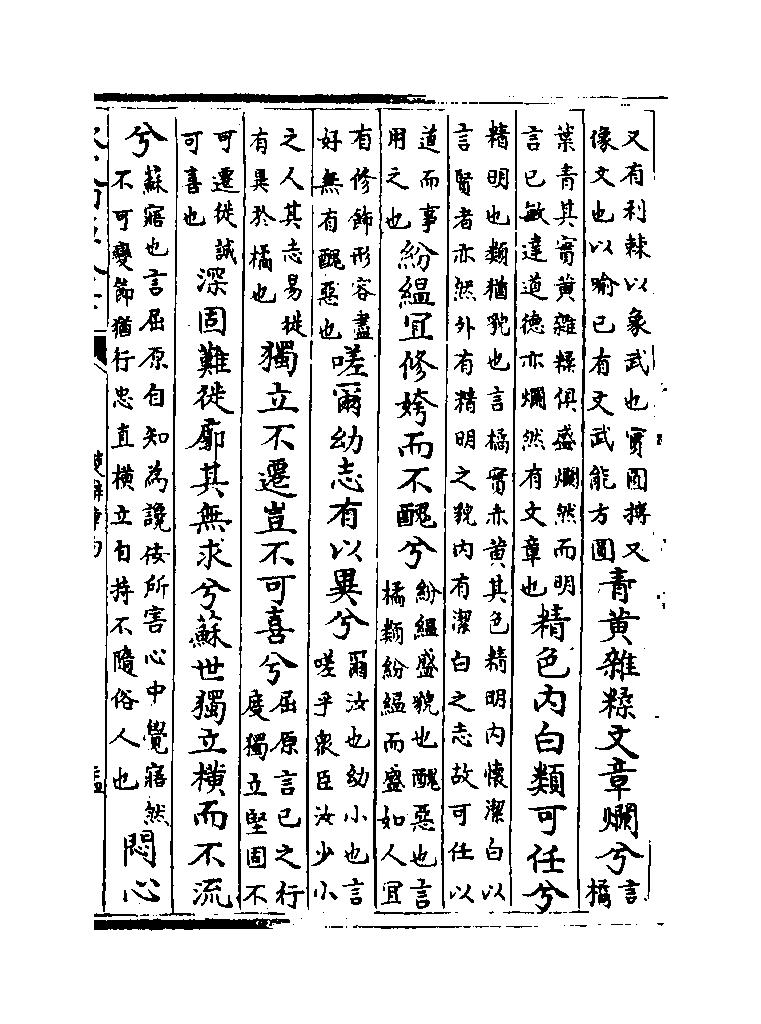 又有利棘以象武也實圓摶又
像文也以喻已有文武能方圓
青黄雜糅文章爛兮
言
橘
葉青其實黄雜糅俱盛爛然而明
言已敏達道德亦爛然有文章也
精色内白類可任兮
精明也類猶貌也言橘實赤黄其色精明内懷潔白以
言賢者亦然外有精明之貌内有潔白之志故可任以
道而事
用之也
紛緼宜修姱而不醜兮
紛緼盛貌也醜惡也言
橘類紛緼而盛如人宜
有修飾形容盡
好無有醜惡也
嗟爾幼志有以異兮
爾汝也幼小也言
嗟乎衆臣汝少小
之人其志易徙
有異於橘也
獨立不遷豈不可喜兮
屈原言已之行
度獨立堅固不
可遷徙誠
可喜也
深固難徙廓其無求兮蘇世獨立横而不流
兮
蘇寤也言屈原自知為讒佞所害心中覺寤然
不可變節猶行忠直横立自持不隨俗人也
悶心